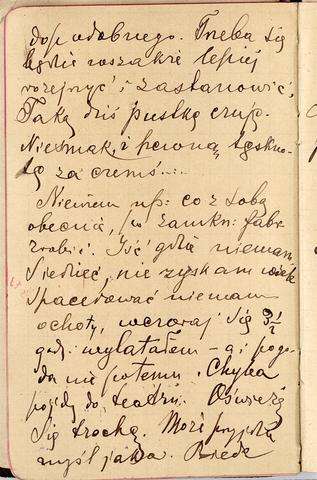 dopodobnego. Trzeba się
będzie wszakże lepiej
rozejrzyć i zastanowić.
Taką dziś pustkę czuję.
Niesmak, i pewną tęskno-
tę za czemś....
Niewiem np: co z sobą
obecnie, po zamkn: fabr:
zrobić. Iść gdzie niemam
siedzieć, nie zyskam wiele
spacerować niemam
ochoty, wczoraj się 3½
godz: wylatałem – a i pogo-
da nie potemu. Chyba
pójdę do teatru. Oświeżę
się trochę. Może przyjdzie
myśl jaka. Będę